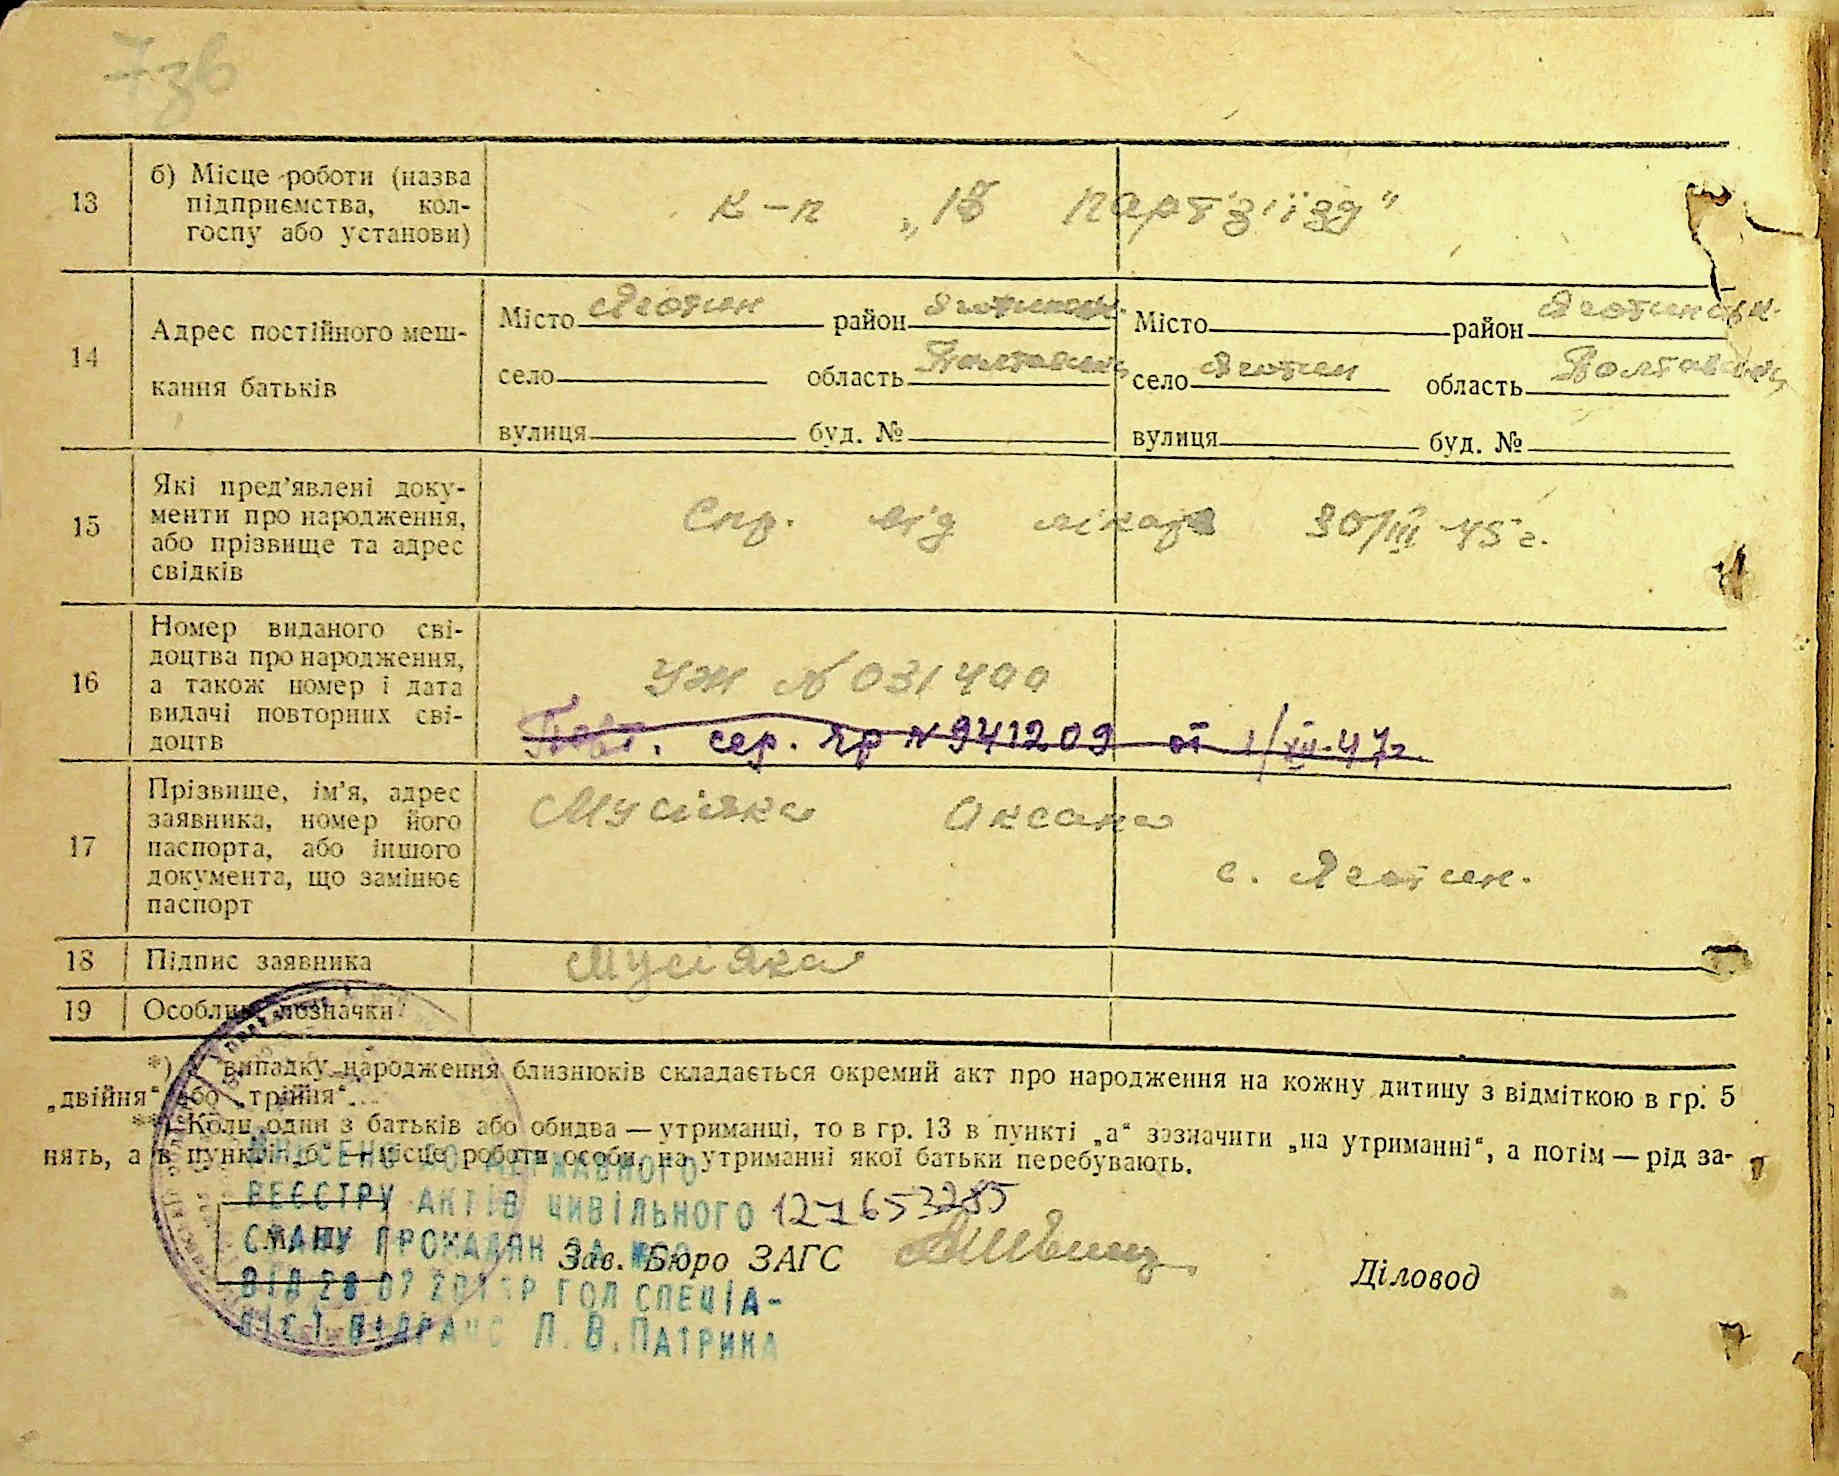 7зв
13
б) Місце роботи (назва
підприємства, кол-
госпу або установи)
к-п „18 партз'їзд"
14
Адрес постійного меш-
кання батьків
Місто Яготин район Яготинськ. Місто район Яготинськ.
село область Полтавськ. село Яготин область Полтавськ.
вулиця буд. № вулиця буд. №
15
Які пред’явлені доку-
менти про народження,
або прізвище та адрес
свідків
Спр. від лікаря 30/III 45 г.
16
Номер виданого сві-
доцтва про народження,
а також номер і дата
видачі повторних сві-
доцтв
УЖ № 031400
Повт. сер. Яр № 941209 от 1/XII-47г.
17
Прізвище, ім’я, адрес
заявника, номер його
паспорта, або іншого
документа, що замінює
паспорт
Мусіяка Оксана
с. Яготин.
18 Підпис заявника
Мусіяка
19 Особливі позначки
*) У випадку народження близнюків складається окремий акт про народження на кожну дитину з відміткою в гр. 5
„двійня“ або „трійня“.
**) Коли один з батьків або обидва — утриманці, то в гр. 13 в пункті „а“ зазначити „на утриманні“, а потім — рід за-
нять, а в пункті „б“ — місце роботи особи, на утриманні якої батьки перебувають.
ВНЕСЕНО ДО ДЕРЖАВНОГО
РЕЄСТРУ АКТІВ ЦИВІЛЬНОГО 127653285
СТАНУ ГРОМАДЯН ЗА №
Зав. Бюро ЗАГС
Діловод
ВІД 28 07 Р ГОЛ СПЕЦІА-
ЛІСТ ВІДРАЦС Л. В. ПАТРИКА